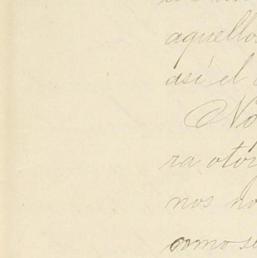 aquello
así el
No
ra otor
nos no
como s